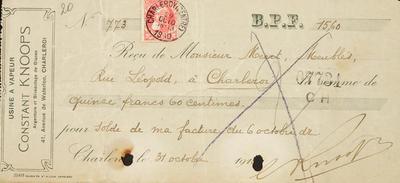 16
20
N. 773
CHARLEROI (CENTRE)
B.P.F. 15,60
USINE A VAPEUR
CONSTANT KNOOPS
Argenture et Biseautage de Glaces
41, Avenue de Waterloo, CHARLEROI
Reçu de Monsieur Meubles,
Rue Léopold, à Charleroi la somme de
quinze francs 60 centimes.
pour solde de ma facture du 6 octobre dr
Charleroi, le 31 octobre 191
Knoops